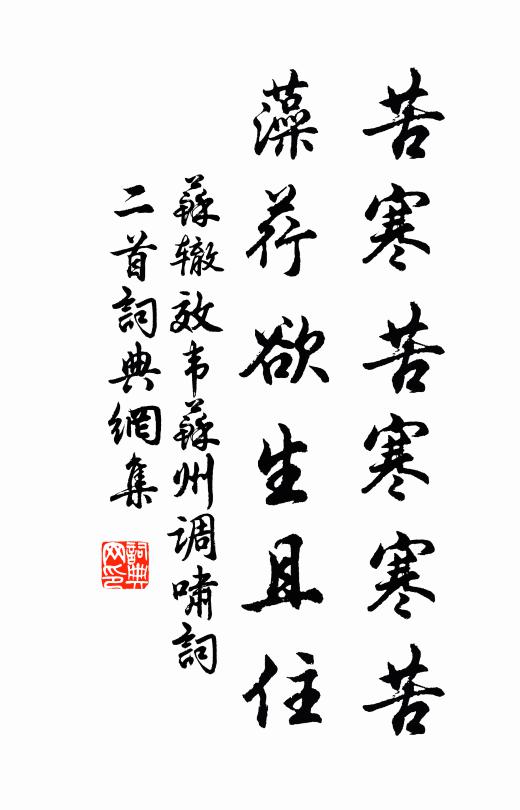 苦寒苦寒寒苦
藻荇欲生且住
蘇辙效韦蘇州调嘯詞
二首詞典網集
詞典网印